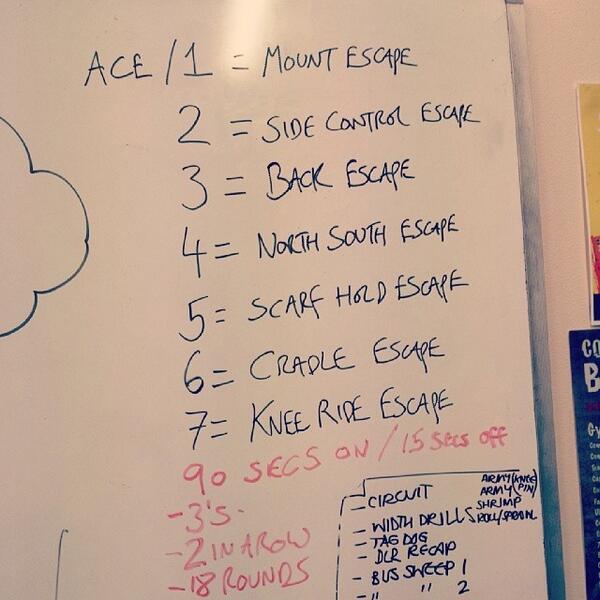 ACE / 1 = MOUNT ESCAPE
2 = SIDE CONTROL ESCAPE
3 = BACK ESCAPE
4 = NORTH SOUTH ESCAPE
5 = SCARF HOLD ESCAPE
6 = CRADLE ESCAPE
7 = KNEE RIDE ESCAPE
90 SECS ON / 15 SECS OFF
- 3'S -
- 2 IN A ROW
- 18 ROUNDS
- CIRCUIT
ARMY (KNEE)
ARMY (PIN)
SHRIMP
- WIDTH DRILLS
- TAG DOG
- DLR RECAP
- BUS SWEEP 1
- " " 2